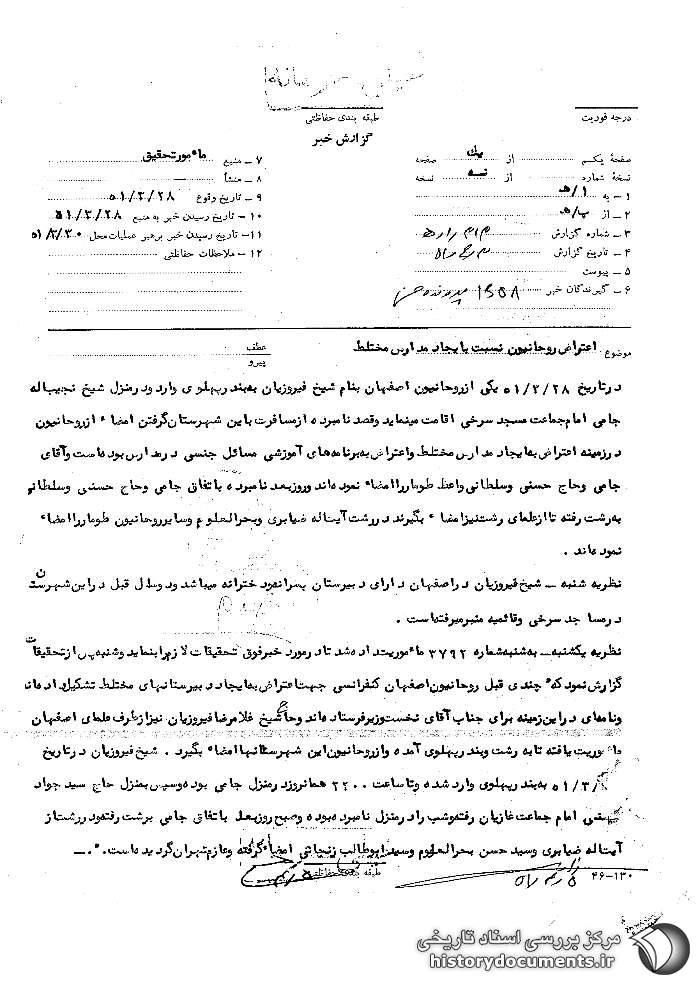 درجه فوریت
طبقه بندی حفاظتی
گزارش خبر
صفحهٔ یکم از یك صفحه
نسخهٔ شماره از سه نسخه
۱ـ به ۱/هـ
۲ـ از ب/هـ
۳ـ شماره گزارش
۴ـ تاریخ گزارش
۵ـ پیوست
۶ـ گیرندگان خبر
۷ـ منبع مأمورتحقیق
۸ـ منشأ
۹ـ تاریخ وقوع ۵۱/۳/۲۸
۱۰ـ تاریخ رسیدن خبر به منبع ۵۱/۳/۲۸
۱۱ـ تاریخ رسیدن خبر برهبر عملیات محل ۵۱/۳/۳۰
۱۲ـ ملاحظات حفاظتی
موضوع اعتراض روحانیون نسبت بایجاد مدارس مختلط
عطف
پیرو
درتاریخ ۵۱/۳/۲۸ یکی ازروحانیون اصفهان بنام شیخ فیروزیان به‌بندرپهلوی واردودرمنزل شیخ نجیب‌اله
جامی امام‌جماعت مسجد سرخی اقامت مینماید وقصد نامبرده ازمسافرت باین شهرستان‌گرفتن امضاء ازروحانیون
درزمینه اعتراض به‌ایجاد مدارس مختلط واعتراض به‌برنامه‌های آموزشی مسائل جنسی درمدارس بوده‌است وآقای
جامی وحاج حسنی وسلطانی‌واعظ طومارراامضاء نموده‌اند وروزبعد نامبرده باتفاق جامی وحاج حسنی وسلطانی
به‌رشت رفته تاازعلمای رشت‌نیزامضاء بگیرند دررشت آیت‌اله ضیابری وبحرالعلوم وسایرروحانیون طومارراامضاء
نموده‌اند .
نظریه شنبه ــ شیخ فیروزیان دراصفهان دارای دبیرستان پسرانه‌ودخترانه میباشد ودوسال قبل دراین‌شهرستان
درمساجد سرخی وقائمیه منبرمیرفته‌است .
نظریه یکشنبه‌ــ به‌شنبه‌شماره ۳۷۹۲ مأموریت‌داده‌شد تادرمورد خبرفوق تحقیقات لازم‌رابنماید وشنبه‌پس ازتحقیقات
گزارش‌نمودکه چندی قبل روحانیون‌اصفهان کنفرانسی جهت‌اعتراض به‌ایجاد دبیرستانهای مختلط تشکیل‌داده‌اند
ونامه‌ای دراین‌زمینه برای جناب آقای نخست‌وزیرفرستاده‌اند وحاج شیخ غلامرضا فیروزیان نیزازطرف علمای اصفهان
مأموریت یافته تابه رشت وبندرپهلوی آمده وازروحانیون‌این شهرستانهاامضاء بگیرد . شیخ فیروزیان درتاریخ
۵۱/۳/ به‌بندرپهلوی وارد شده وتاساعت ۲۲۰۰ همانروزدرمنزل جامی بوده‌وسپس‌بمنزل حاج سید جواد
حسنی امام جماعت غازیان رفته‌وشب رادرمنزل نامبرده‌بوده وصبح روزبعد باتفاق جامی برشت رفته‌ودررشت‌از
آیت‌اله ضیابری وسید حسن بحرالعلوم وسید ابوطالب زنجانی امضاءگرفته وعازم‌تهران‌گردیده‌است.
طبقه بندی حفاظتی
۴۶-۱۳۰
مرکز بررسی اسناد تاریخی
historydocuments.ir